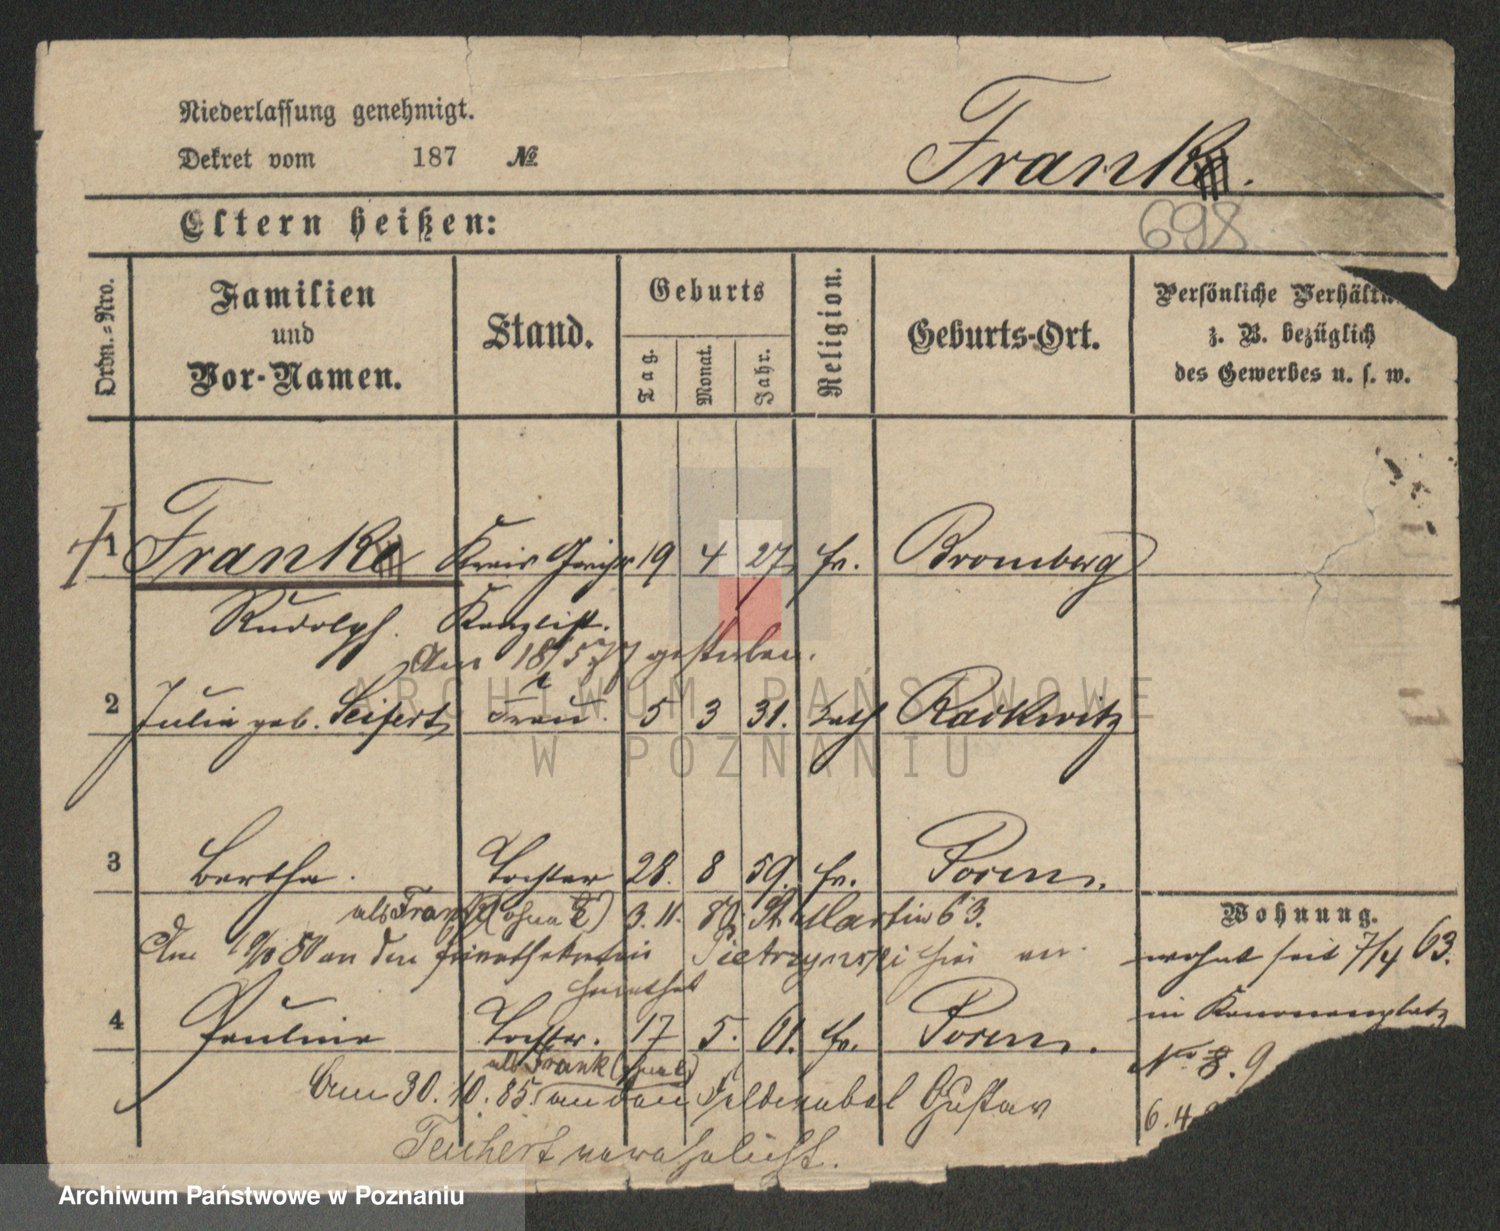 Niederlassung genehmigt.
Dekret vom 187 №
Frank.
698
Eltern heißen:
Ordn.-Nro.
Familien und Vor-Namen.
Stand.
Geburts
Tag.
Monat.
Jahr.
Religion.
Geburts-Ort.
Persönliche
z. B. bezüglich
des Gewerbes u. s. w.
1 Franke Kreis Gerichts 19 4 27 Ev. Bromberg
Rudolph. Kanzlist.
Am 18/5 77 gestorben.
2 Julie geb. Seifert, Frau. 5 3 31. kath Rackwitz
3 Bertha. Tochter 28. 8 59. Ev. Posen.
als Frank (ohne E) 3. 11. 80. St. Martin 63.
Am 80 an den Pietrzynski hier ver
heirathet
4 Pauline Tochter. 17 5. 61. Ev. Posen.
als Frank (ohne e)
Am 30. 10. 85. an den Feldwebel Gustav
Teichert verehelicht.
Wohnung.
wohnt seit 7/4 63.
in Kanonenplatz
No 8. 9
6. 4.
ARCHIWUM PAŃSTWOWE
W POZNANIU
Archiwum Państwowe w Poznaniu